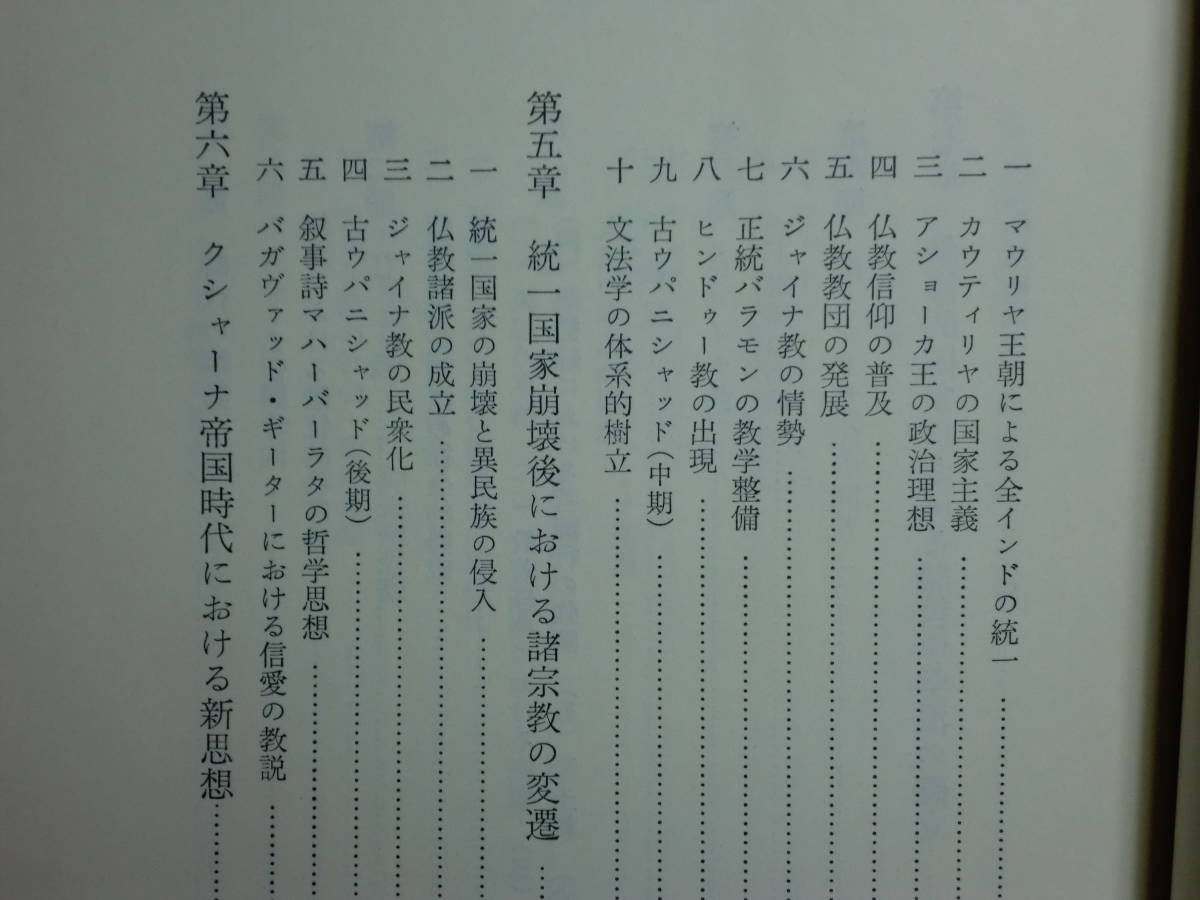 一　マウリヤ王朝による全インドの統一……………
二　カウティリヤの国家主義……………
三　アショーカ王の政治理想……………
四　仏教信仰の普及……………
五　仏教教団の発展……………
六　ジャイナ教の情勢……………
七　正統バラモンの教学整備……………
八　ヒンドゥー教の出現……………
九　古ウパニシャッド(中期)……………
十　文法学の体系的樹立……………
第五章　統一国家崩壊後における諸宗教の変遷……
一　統一国家の崩壊と異民族の侵入……………
二　仏教諸派の成立……………
三　ジャイナ教の民衆化……………
四　古ウパニシャッド(後期)……………
五　叙事詩マハーバーラタの哲学思想……………
六　バガヴァッド・ギーターにおける信愛の教説……
第六章　クシャーナ帝国時代における新思想……